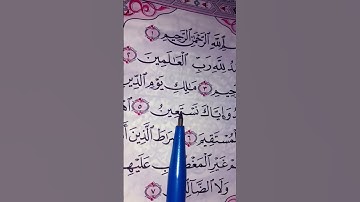 اللَّهِ الرَّحْمَٰنِ الرَّحِيمِ ١
لِلَّهِ رَبِّ الْعَالَمِينَ ٢
٣ مَالِكِ يَوْمِ الدِّينِ
وَإِيَّاكَ نَسْتَعِينُ ٥
الْمُسْتَقِيمَ ٦ صِرَاطَ الَّذِينَ
غَيْرِ الْمَغْضُوبِ عَلَيْهِمْ
وَلَا الضَّالِّينَ ٧